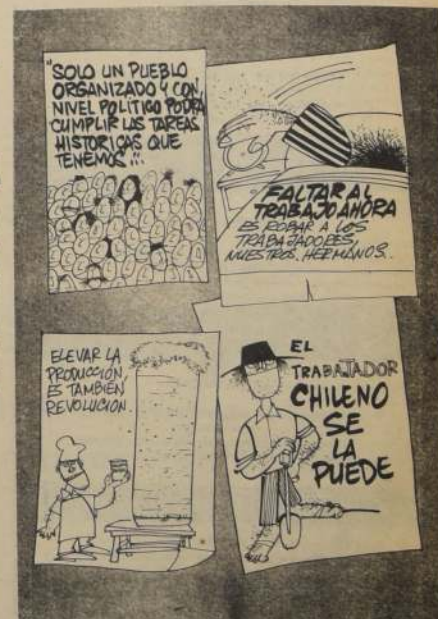 "SOLO UN PUEBLO
ORGANIZADO Y CON
NIVEL POLÍTICO PODRÁ
CUMPLIR LAS TAREAS
HISTORICAS QUE
TENEMOS"...
FALTAR AL
TRABAJO AHORA
ES ROBAR A LOS
TRABAJADORES,
NUESTROS HERMANOS..
ELEVAR LA
PRODUCCIÓN,
ES TAMBIÉN
REVOLUCIÓN.
EL
TRABAJADOR
CHILENO
SE
LA
PUEDE